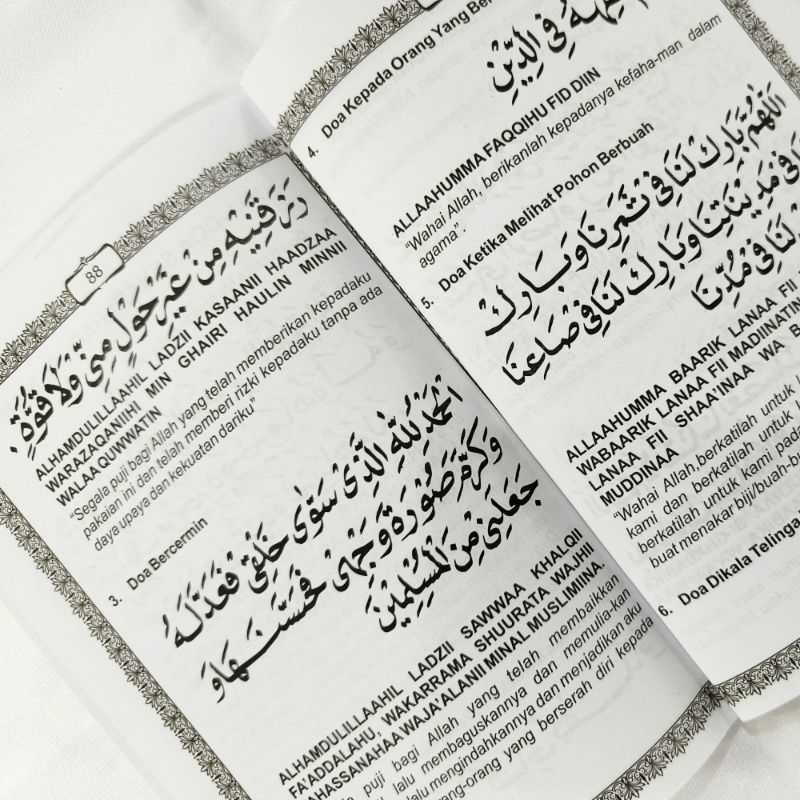 88
وَرَزَقَنِيْهِ مِنْ غَيْرِ حَوْلٍ مِنِّيْ وَلَا قُوَّةٍ.
ALHAMDULILLAAHIL LADZII KASAANII HAADZAA
WARAZAQANIIHI MIN GHAIRI HAULIN MINNII
WALAA QUWWATIN
“Segala puji bagi Allah yang telah memberikan kepadaku
pakaian ini dan telah memberi rizki kepadaku tanpa ada
daya upaya dan kekuatan dariku”
3. Doa Bercermin
اَلْحَمْدُ لِلّٰهِ الَّذِيْ سَوّٰى خَلْقِيْ فَعَدَّلَهُ
وَكَرَّمَ صُوْرَةَ وَجْهِيْ فَحَسَّنَهَا وَ
جَعَلَنِيْ مِنَ الْمُسْلِمِيْنَ
ALHAMDULILLAAHIL LADZII SAWWAA KHALQII
FA'ADDALAHU, WAKARRAMA SHUURATA WAJHII
AHASSANAHAA WAJA'ALANII MINAL MUSLIMIINA.
puji bagi Allah yang telah membaikkan
lalu membaguskannya dan memulia-kan
lalu mengindahkannya dan menjadikan aku
orang yang berserah diri kepada
فِي الدِّيْنِ
4. Doa Kepada Orang Yang Ber
ALLAAHUMMA FAQQIHU FID DIIN
“Wahai Allah, berikanlah kepadanya kefaha-man dalam
agama”.
5. Doa Ketika Melihat Pohon Berbuah
اَللّٰهُمَّ بَارِكْ لَنَا فِيْ ثَمَرِنَا وَبَارِكْ
فِيْ مَدِيْنَتِنَا وَبَارِكْ لَنَا فِيْ صَاعِنَا
لَنَا فِيْ مُدِّنَا
ALLAAHUMMA BAARIK LANAA FII
WABAARIK LANAA FII MADIINATIN
LANAA FII SHAA'INAA WA BA
MUDDINAA
“Wahai Allah,berkatilah untuk
kami dan berkatilah untuk
berkatilah untuk kami pad
buat menakar biji/buah-bu
6. Doa Dikala Telinga